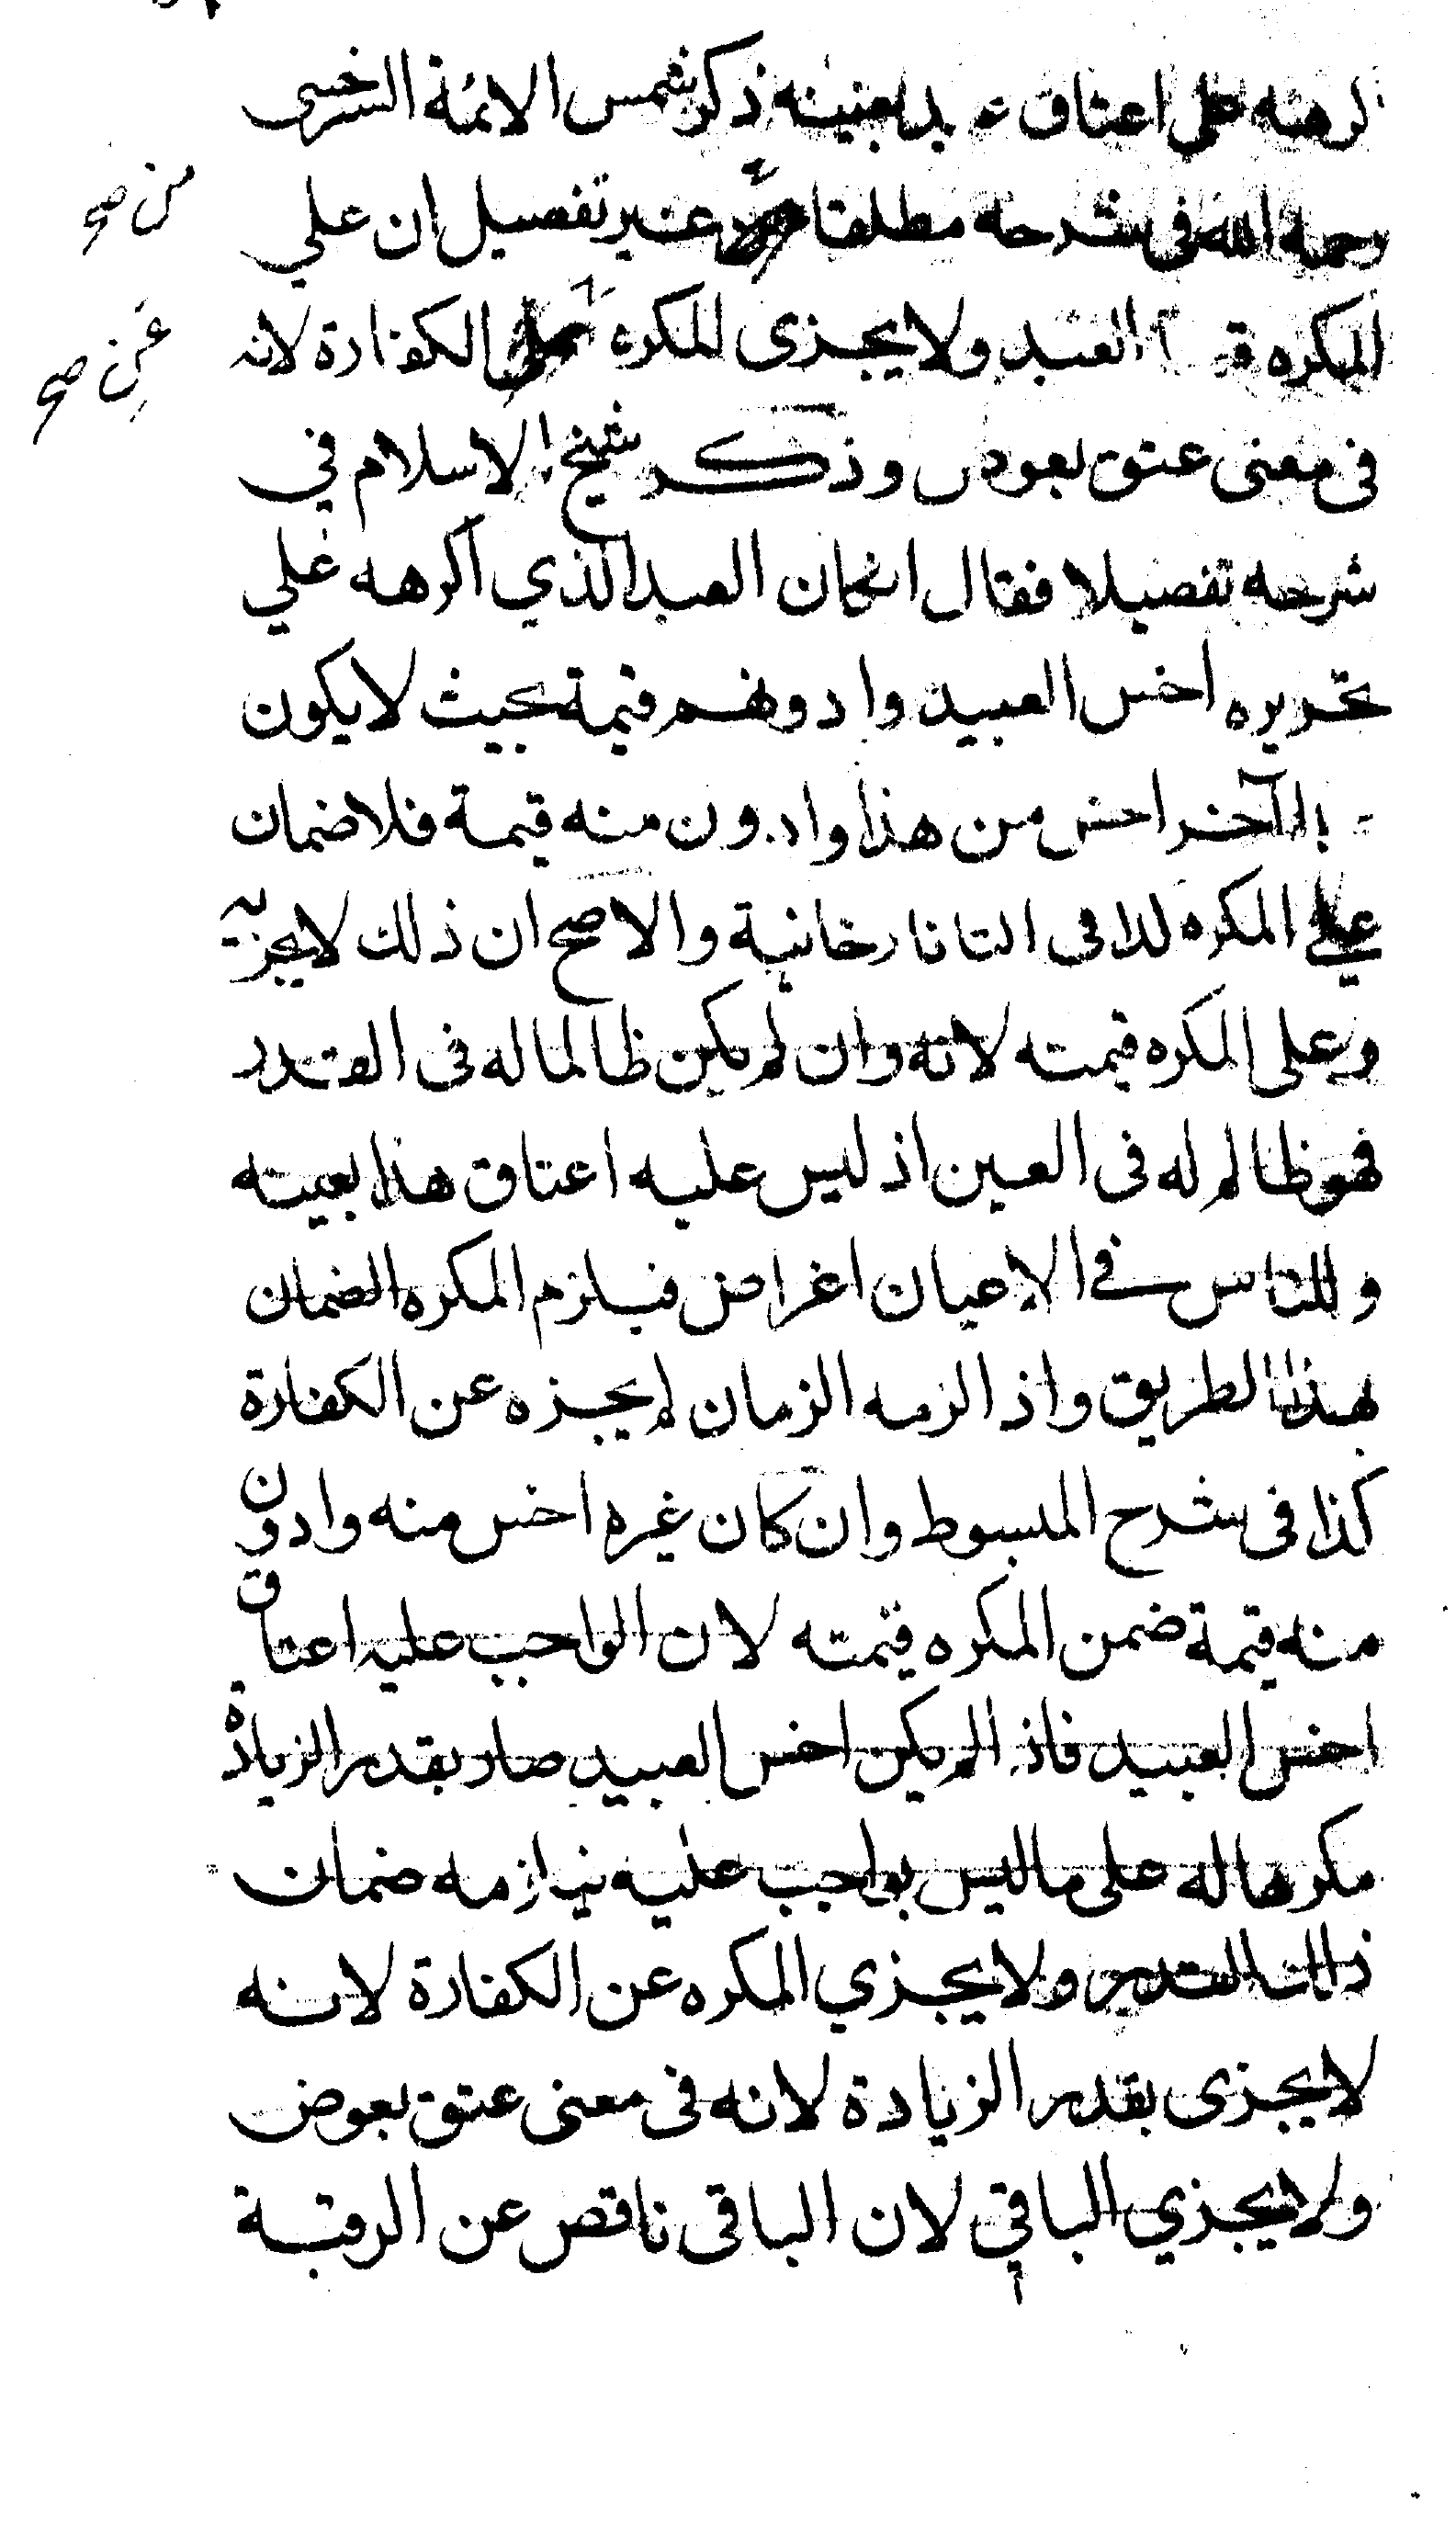 اكرهه على اعتاق عبد بعينه ذكر شمس الائمة السرخسى
رحمه الله فى شرحه مطلقا من غير تفصيل ان علي
من صح
المكره قيمة العبد ولا يجزى المكره عن الكفارة لانه
عن صح
فى معنى عتق بعوض وذكر شيخ الاسلام في
شرحه تفصيلا فقال ان كان العبد الذي اكرهه علي
تحريره اخس العبيد وادونهم قيمة بحيث لا يكون
الآخر اخس من هذا وادون منه قيمة فلا ضمان
علي المكره كذا فى التاتارخانية والاصح ان ذلك لا يجزيه
وعلى المكره قيمته لانه وان لم يكن ظالما له فى القدر
فهو ظالم له فى العين اذ ليس عليه اعتاق هذا بعينه
وللناس في الاعيان اغراض فيلزم المكره الضمان
بهذا الطريق واذا لزمه الزمان لم يجزه عن الكفارة
كذا فى شرح المبسوط وان كان غيره اخس منه وادون
منه قيمة ضمن المكره قيمته لان الواجب عليه اعتاق
اخس العبيد فاذا لم يكن اخس العبيد صار بقدر الزيادة
مكرها له على ما ليس بواجب عليه فيلزمه ضمان
ذلك القدر ولا يجزي المكره عن الكفارة لانه
لا يجزى بقدر الزيادة لانه فى معنى عتق بعوض
ولا يجزي الباقي لان الباقى ناقص عن الرقبة